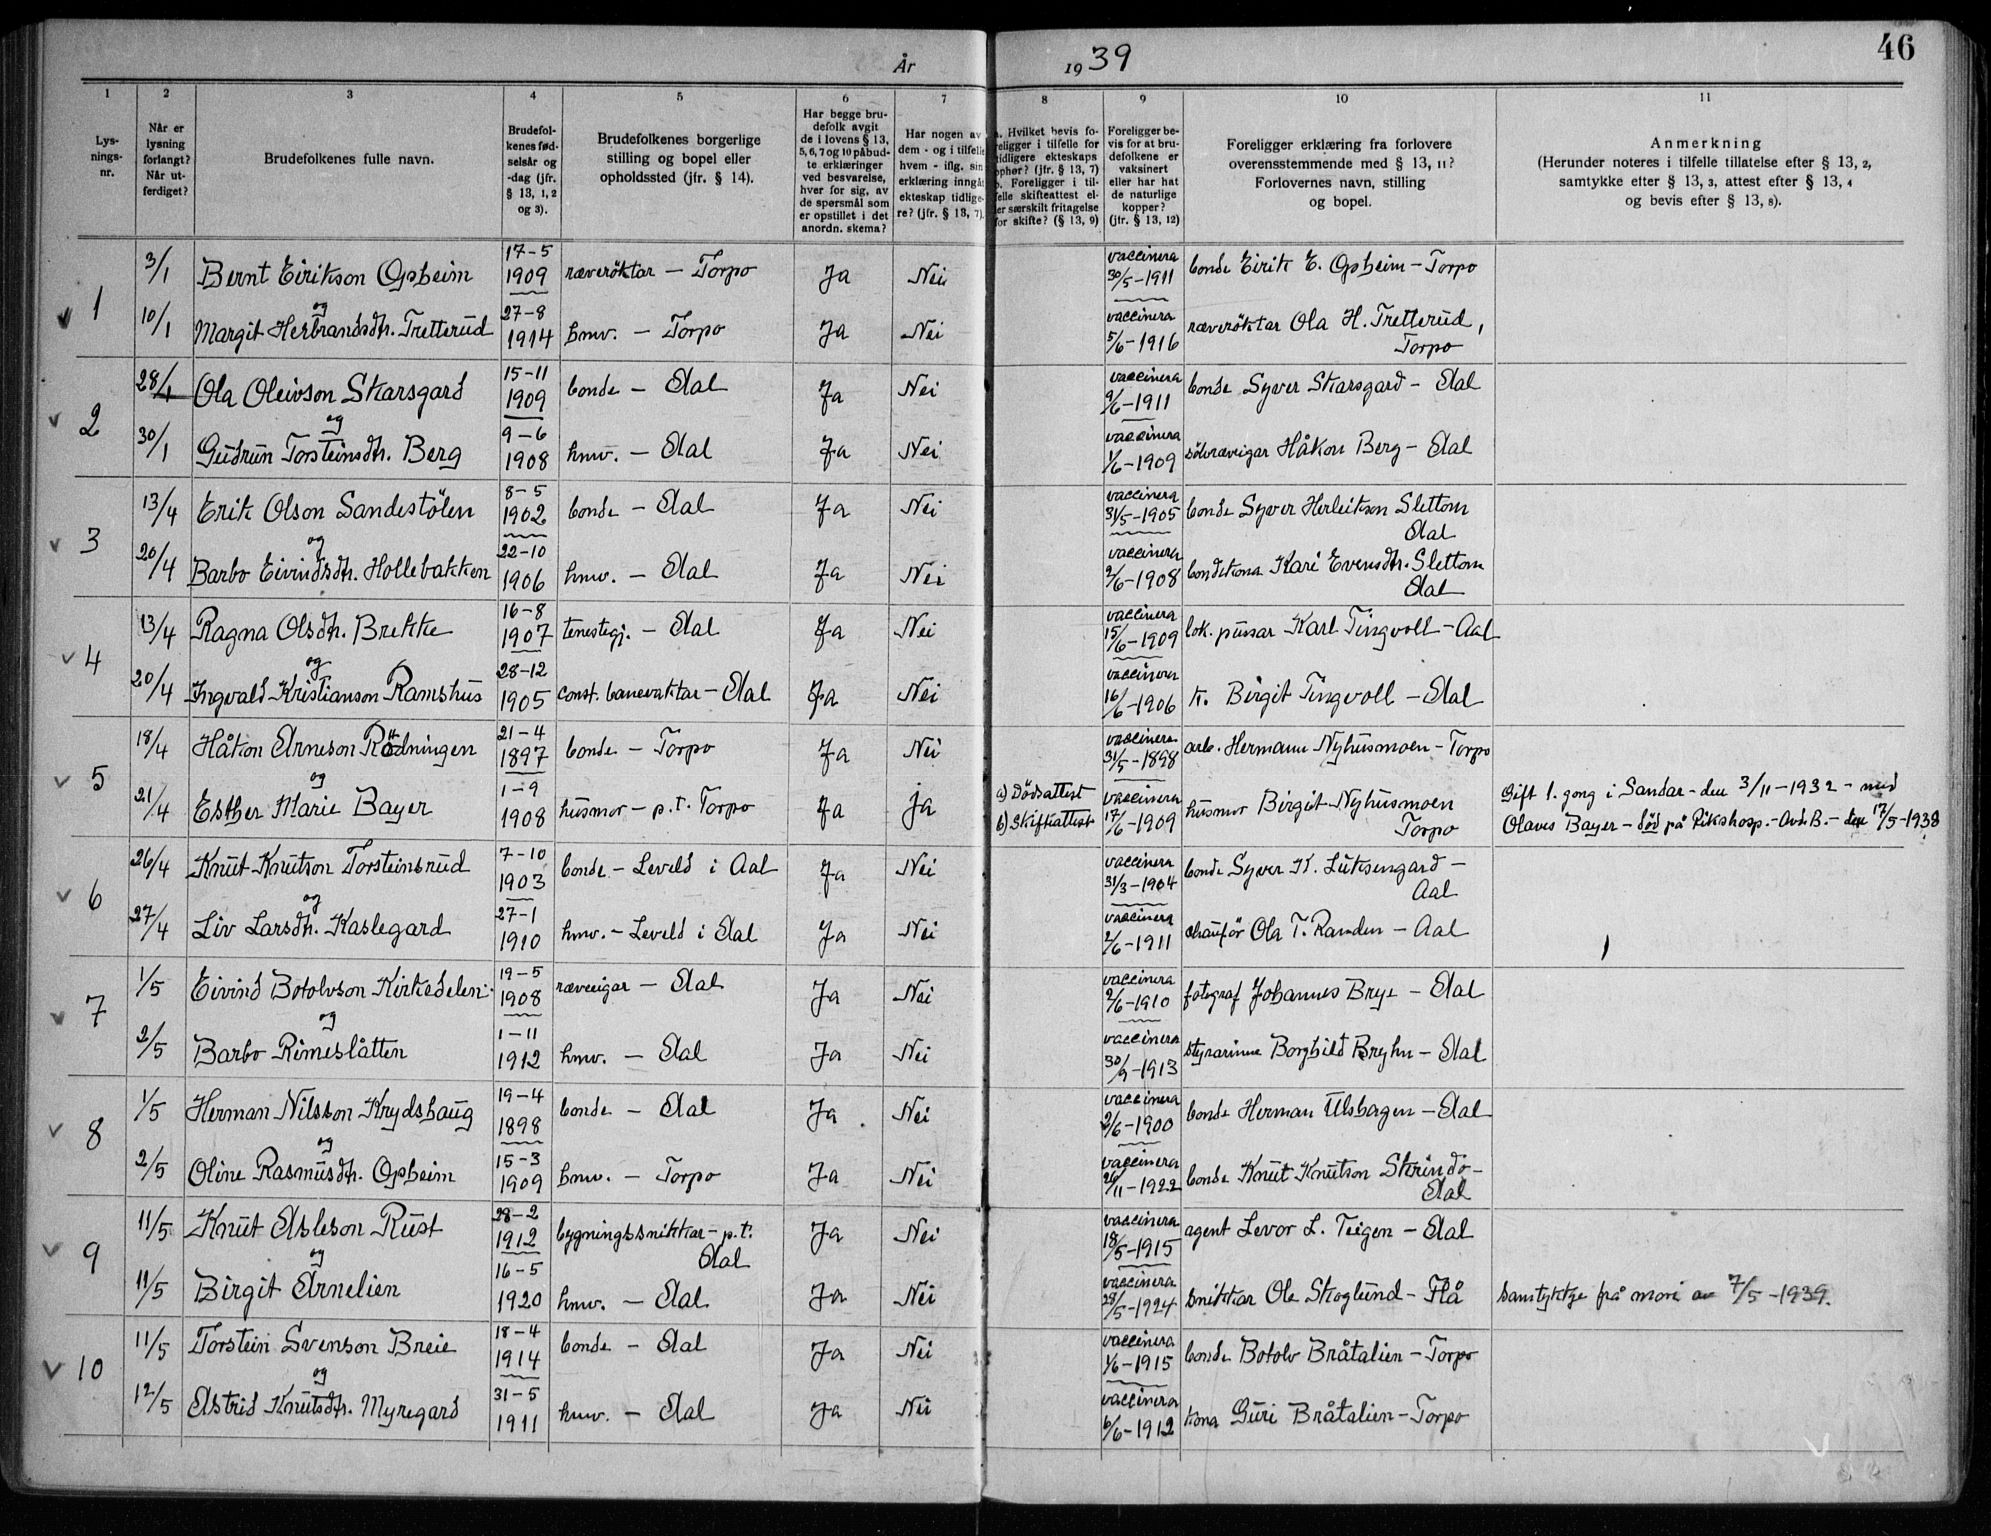 År 1939
46
1 2 3 4 5 6 7 8 9 10 11
Lys-
nings-
nr.
Når er
lysning
forlangt?
Når ut-
ferdiget?
Brudefolkenes fulle navn.
Brudefol-
kenes fød-
selsår og
-dag (jfr.
§ 13, 1, 2
og 3).
Brudefolkenes borgerlige
stilling og bopel eller
opholdssted (jfr. § 14).
Har begge bru-
defolk avgit
de i lovens § 13,
5, 6, 7 og 10 påbud-
te erklæringer
ved besvarelse,
hver for sig, av
de spørsmål som
er opstillet i det
anordn. skema?
Har nogen av
dem - og i tilfelle
hvem - iflg. sin
erklæring inngåt
ekteskap tidlige-
re? (jfr. § 13, 7).
a. Hvilket bevis fo-
religger i tilfelle for
tidligere ekteskaps
ophør? (jfr. § 13, 7)
b. Foreligger i til-
felle skifteattest el-
ler særskilt fritagelse
for skifte? (§ 13, 9)
Foreligger be-
vis for at bru-
defolkene er
vaksinert
eller har hat
de naturlige
kopper?
(jfr. § 13, 12)
Foreligger erklæring fra forlovere
overensstemmende med § 13, 11?
Forlovernes navn, stilling
og bopel.
Anmerkning
(Herunder noteres i tilfelle tillatelse efter § 13, 2,
samtykke efter § 13, 3, attest efter § 13, 4
og bevis efter § 13, 8).
1
3/1 Bernt Eirikson Opheim 17-5 1909 ræverøktar - Torpo Ja Nei vaccinera 30/5-1911 bonde Eirik E. Opheim - Torpo
og
10/1 Margit Herbrandsdtr. Tretterud 27-8 1914 hmv. - Torpo Ja Nei vaccinera 5/6-1916 ræverøktar Ola H. Tretterud,
Torpo
2
28/1 Ola Oleivson Skarsgard 15-11 1909 bonde - Aal Ja Nei vaccinera 9/6-1911 bonde Syver Skarsgard - Aal
og
30/1 Gudrun Torsteinsdtr. Berg 9-6 1908 hmv. - Aal Ja Nei vaccinera 1/6-1909 sølvræveigar Håkon Berg - Aal
3
13/4 Erik Olson Sandestölen 8-5 1902 bonde - Aal Ja Nei vaccinera 31/5-1905 bonde Syver Herleikson Slettom
Aal
og
20/4 Barbo Eivindsdtr. Hollebakken 22-10 1906 hmv. - Aal Ja Nei vaccinera 2/6-1908 bondekona Kari Evensdtr. Slettom
Aal
4
13/4 Ragna Olsdtr. Brekke 16-8 1907 tenestegj. - Aal Ja Nei vaccinera 15/6-1909 lok. pussar Karl Tingvoll - Aal
og
20/4 Ingvald Kristianson Ramshus 28-12 1905 const. banevaktar - Aal Ja Nei vaccinera 16/6-1906 k. Birgit Tingvoll - Aal
5
18/4 Håkon Arneson Rödningen 21-4 1897 bonde - Torpo Ja Nei vaccinera 31/5-1898 arb. Hermann Nyhusmoen - Torpo
og
21/4 Esther Marie Bayer 1-9 1908 husmor - p.t. Torpo Ja ja a) Dödsattest b) Skifteattest vaccinera 17/6-1909 husmor Birgit Nyhusmoen
Torpo
Gift 1. gong i Sandar - den 3/11-1932 - med
Olaves Bayer - död på Rikshosp. - Avd. B. - den 17/5-1938
6
26/4 Knut Knutson Torsteinsrud 7-10 1903 bonde - Leveld i Aal Ja Nei vaccinera 31/3-1904 bonde Syver K. Luksengard -
Aal
og
27/4 Liv Larsdtr. Kaslegard 27-1 1910 hmv. - Leveld i Aal Ja Nei vaccinera 2/6-1911 chauför Ola T. Randen - Aal
7
1/5 Eivind Botolvson Kirkedelen 19-5 1908 ræveeigar - Aal Ja Nei vaccinera 2/6-1910 fotograf Johannes Brye - Aal
og
2/5 Barbo Rimeslåtten 1-11 1912 hmv. - Aal Ja Nei vaccinera 30/9-1913 styrarinne Borghild Bryhn - Aal
8
1/5 Herman Nilsson Krydshaug 19-4 1898 bonde - Aal Ja Nei vaccinera 2/6-1900 bonde Herman Ulshagen - Aal
og
2/5 Oline Rasmusdtr. Opheim 15-3 1909 hmv. - Torpo Ja Nei vaccinera 26/11-1922 bonde Knut Knutson Skrindo -
Aal
9
11/5 Knut Asleson Rust 28-2 1912 bygningssnikkar - p.t.
Aal Ja Nei vaccinera 18/5-1915 agent Levor L. Teigen - Aal
og
11/5 Birgit Arnelien 16-5 1920 hmv. - Aal Ja Nei vaccinera 28/5-1924 snikkar Ole Skoglund - Flå Samtykkje frå mori av 7/5-1939.
10
11/5 Torstein Svenson Breie 18-4 1914 bonde - Aal Ja Nei vaccinera 1/6-1915 bonde Botolv Bråtalien - Torpo
og
12/5 Astrid Knutsdtr. Myregard 31-5 1911 hmv. - Aal Ja Nei vaccinera 6/6-1912 kona Guri Bråtalien - Torpo